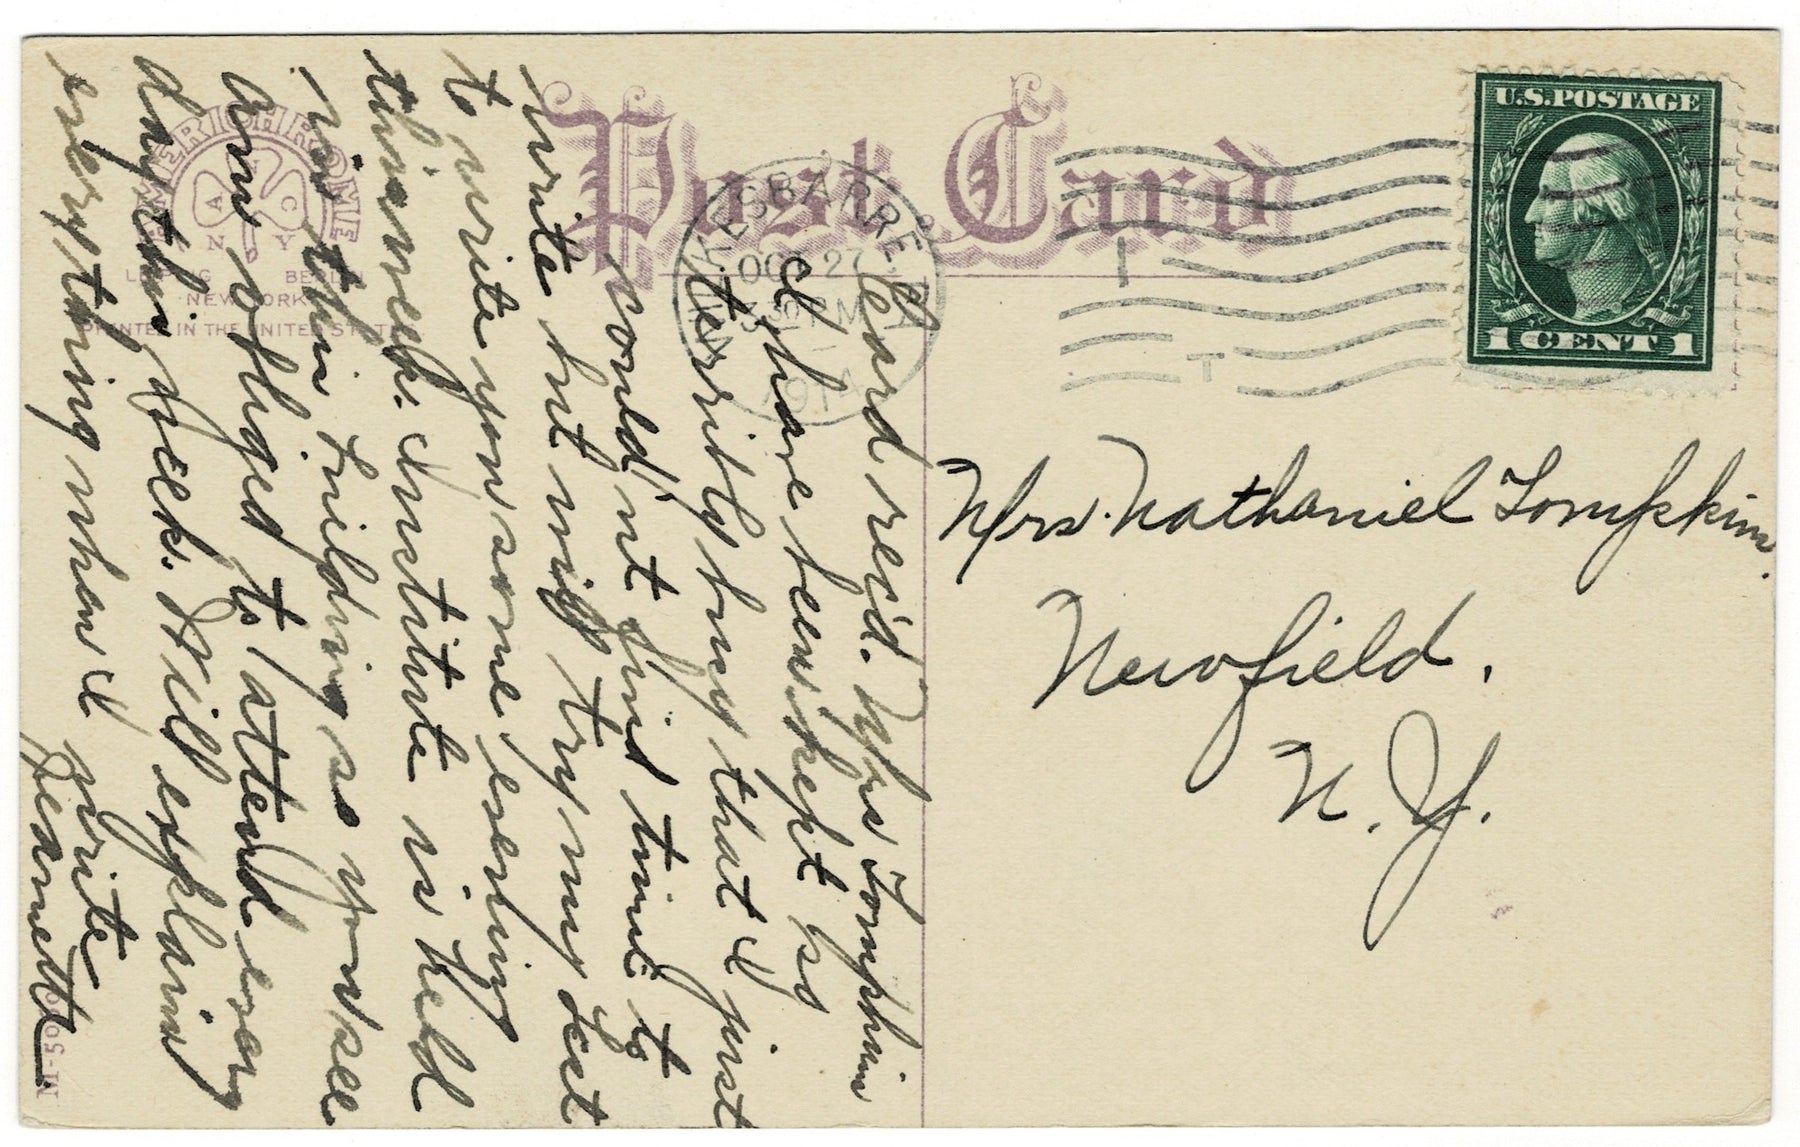 Post Card
AMERICHROME
A N C
N Y
LEIPZIG BERLIN
NEW YORK
PRINTED IN THE UNITED STATES.
WILKES BARRE PA
OCT 27
30 PM
1914
1
T
U.S. POSTAGE
1 CENT 1
Mrs. Nathaniel Tompkins.
Newfield.
N.Y.
Card rec'd. Mrs Tompkins
I have been kept so
terribly busy that I just
could'nt find time to
write but will try my best
to write you some evening
this week. Institute is held
in this building as you see
am obliged to attend every
day this week. Will explain
everything when I write
Jeanette